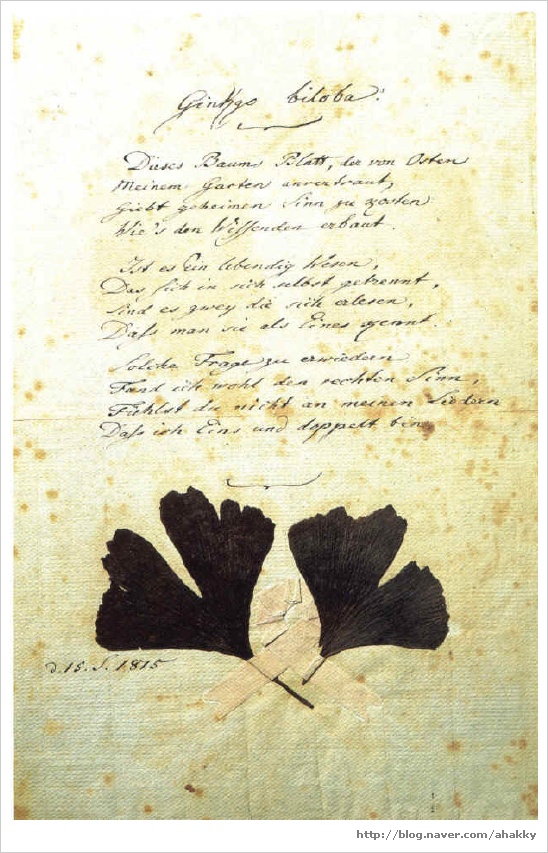 Ginkgo biloba.
Dieses Baums Blatt, der von Osten
Meinem Garten anvertraut,
Giebt geheimen Sinn zu kosten
Wie's den Wissenden erbaut.
Ist es Ein lebendig Wesen,
Das sich in sich selbst getrennt,
Sind es zwey die sich erlesen,
Dass man sie als Eines kennt.
Solche Frage zu erwiedern
Fand ich wohl den rechten Sinn,
Fühlst du nicht an meinen Liedern
Dass ich Eins und doppelt bin.
d. 15. S. 1815
http://blog.naver.com/ahakky